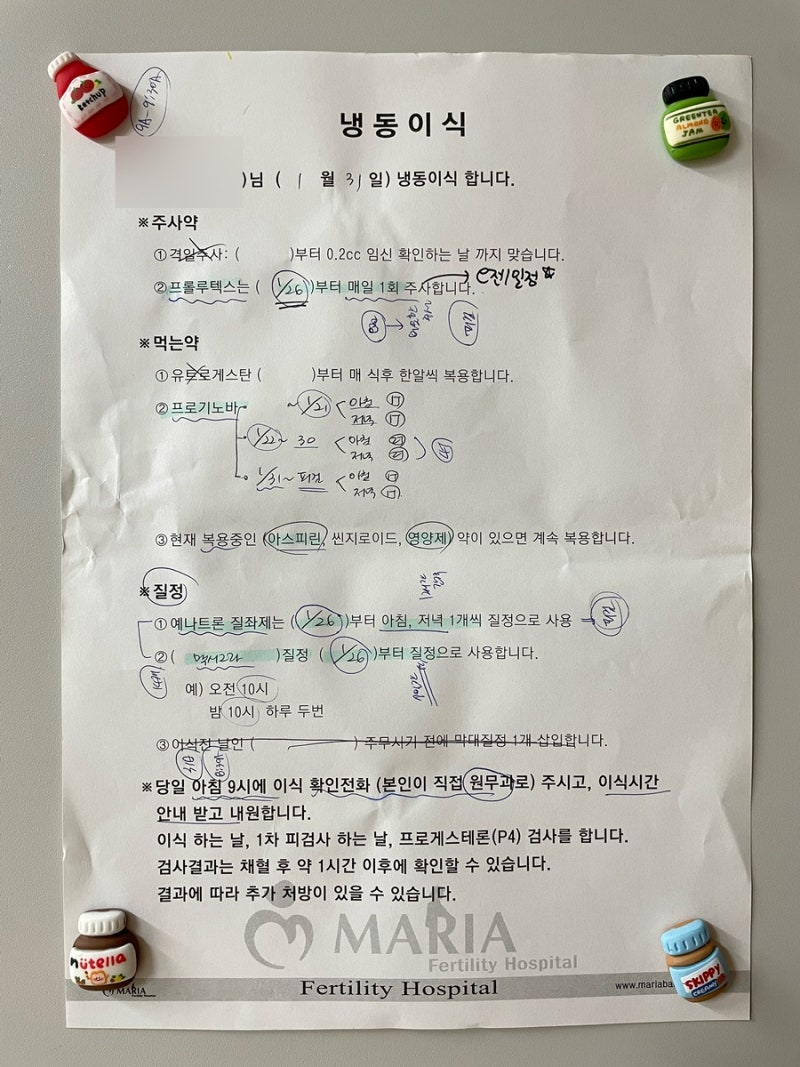 9A-9:30A
Ketchup
GREENTEA
ALMOND
JAM
냉동이식
)님 ( 1 월 31 일) 냉동이식 합니다.
※주사약
①격일주사: ( )부터 0.2cc 임신 확인하는 날 까지 맞습니다.
②프롤루텍스는 ( 1/26 )부터 매일 1회 주사합니다.
피검
※먹는약
①유트로게스탄 ( )부터 매 식후 한알씩 복용합니다.
②프로기노바
~1/21 < 아침 1T
저녁 1T
1/22~ 30 < 아침 2T
저녁 2T
1/31~ 피검 < 아침 1T
저녁 1T
③현재 복용중인 (아스피린, 씬지로이드, 영양제) 약이 있으면 계속 복용합니다.
※질정
①예나트론 질좌제는 ( 1/26 )부터 아침, 저녁 1개씩 질정으로 사용 → 피검
②( )질정 ( 1/26 )부터 질정으로 사용합니다.
예) 오전 10시
밤 10시 하루 두번
③이식전 날인 ( ) 주무시기 전에 막대질정 1개 삽입합니다.
31일
※당일 아침 9시에 이식 확인전화 (본인이 직접 원무과로) 주시고, 이식시간
안내 받고 내원합니다.
이식 하는 날, 1차 피검사 하는 날, 프로게스테론(P4) 검사를 합니다.
검사결과는 채혈 후 약 1시간 이후에 확인할 수 있습니다.
결과에 따라 추가 처방이 있을 수 있습니다.
MARIA
Fertility Hospital
nutella
SKIPPY
CREAMY
MARIA
Fertility Hospital
www.mariaba